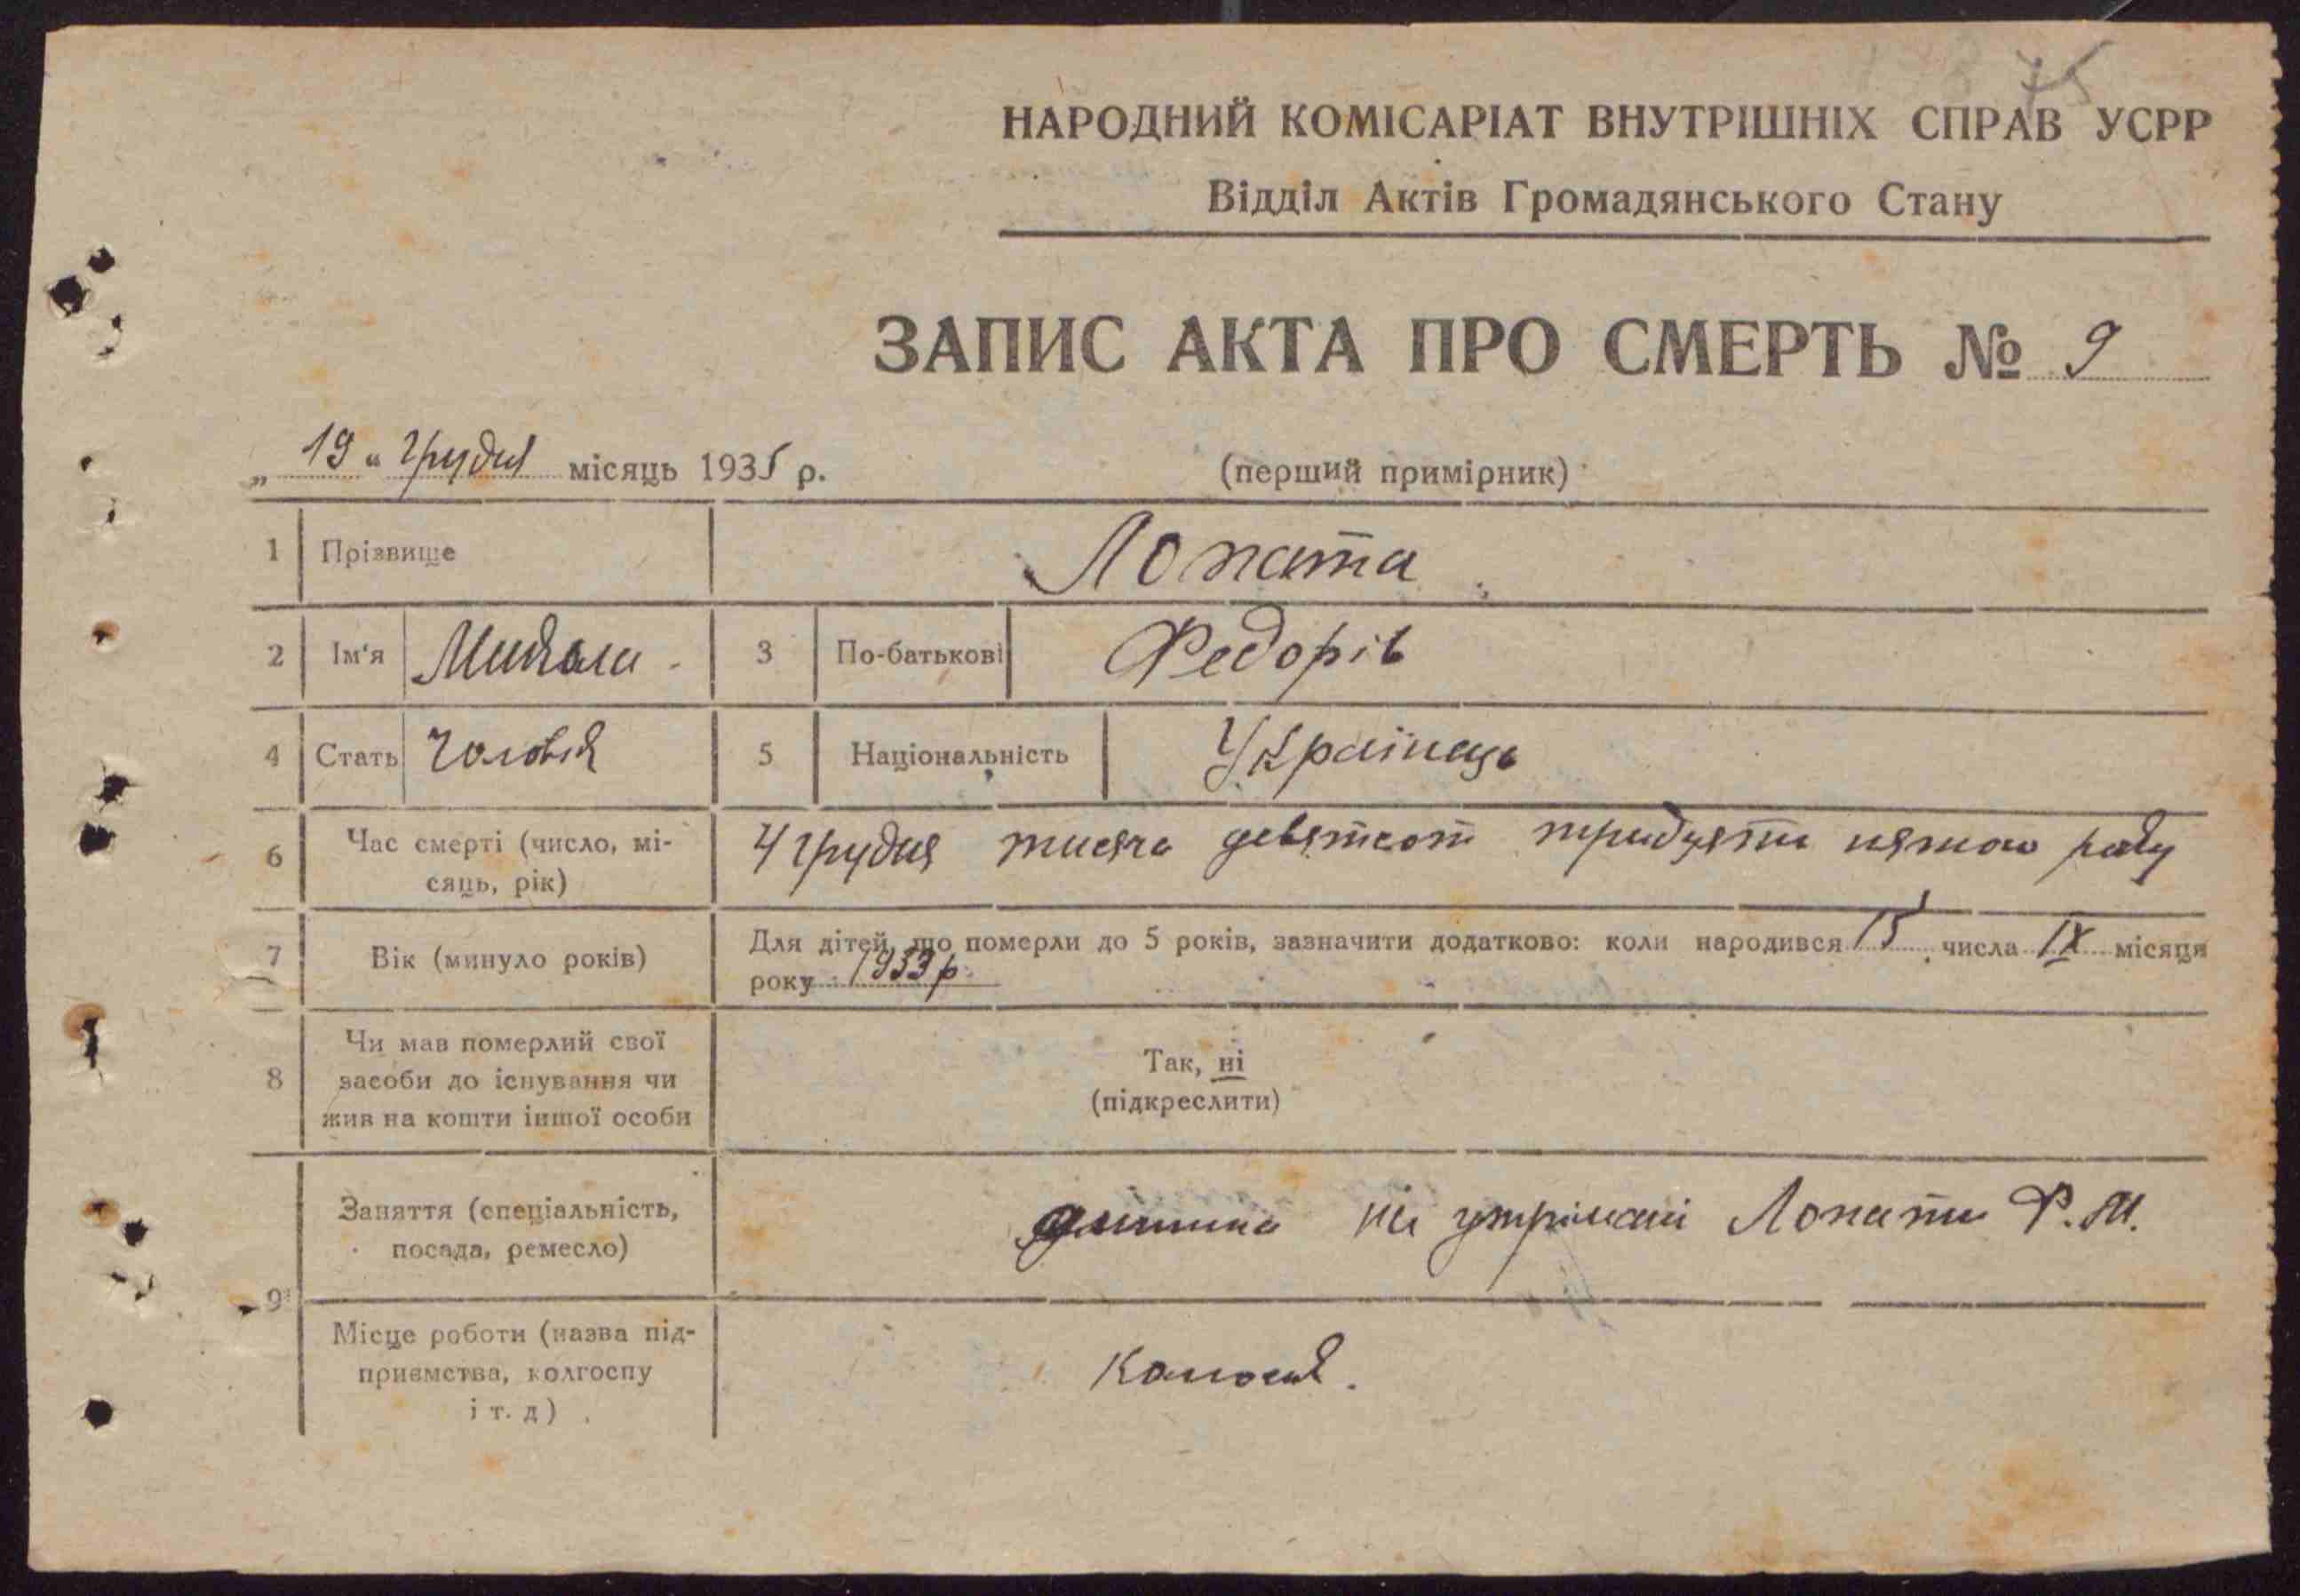 75
НАРОДНИЙ КОМІСАРІАТ ВНУТРІШНІХ СПРАВ УСРР
Відділ Актів Громадянського Стану
ЗАПИС АКТА ПРО СМЕРТЬ № 9
„ 19 " Грудня місяць 1935 р. (перший примірник)
1 Прізвище Лопата
2 Ім'я Микола 3 По-батькові Федорів
4 Стать Чоловік 5 Національність Українець
6 Час смерті (число, мі- 4 грудня тисяча девятсот тридцять пятого року
сяць, рік)
7 Вік (минуло років) Для дітей, що померли до 5 років, зазначити додатково: коли народився 15 числа IX місяця
року 1933 р.
8 Чи мав померлий свої
засоби до існування чи
жив на кошти іншої особи
Так, ні
(підкреслити)
9 Заняття (спеціальність,
посада, ремесло)
дитина на утрімані Лопати Ф. М.
Місце роботи (назва під-
приємства, колгоспу
і т. д)